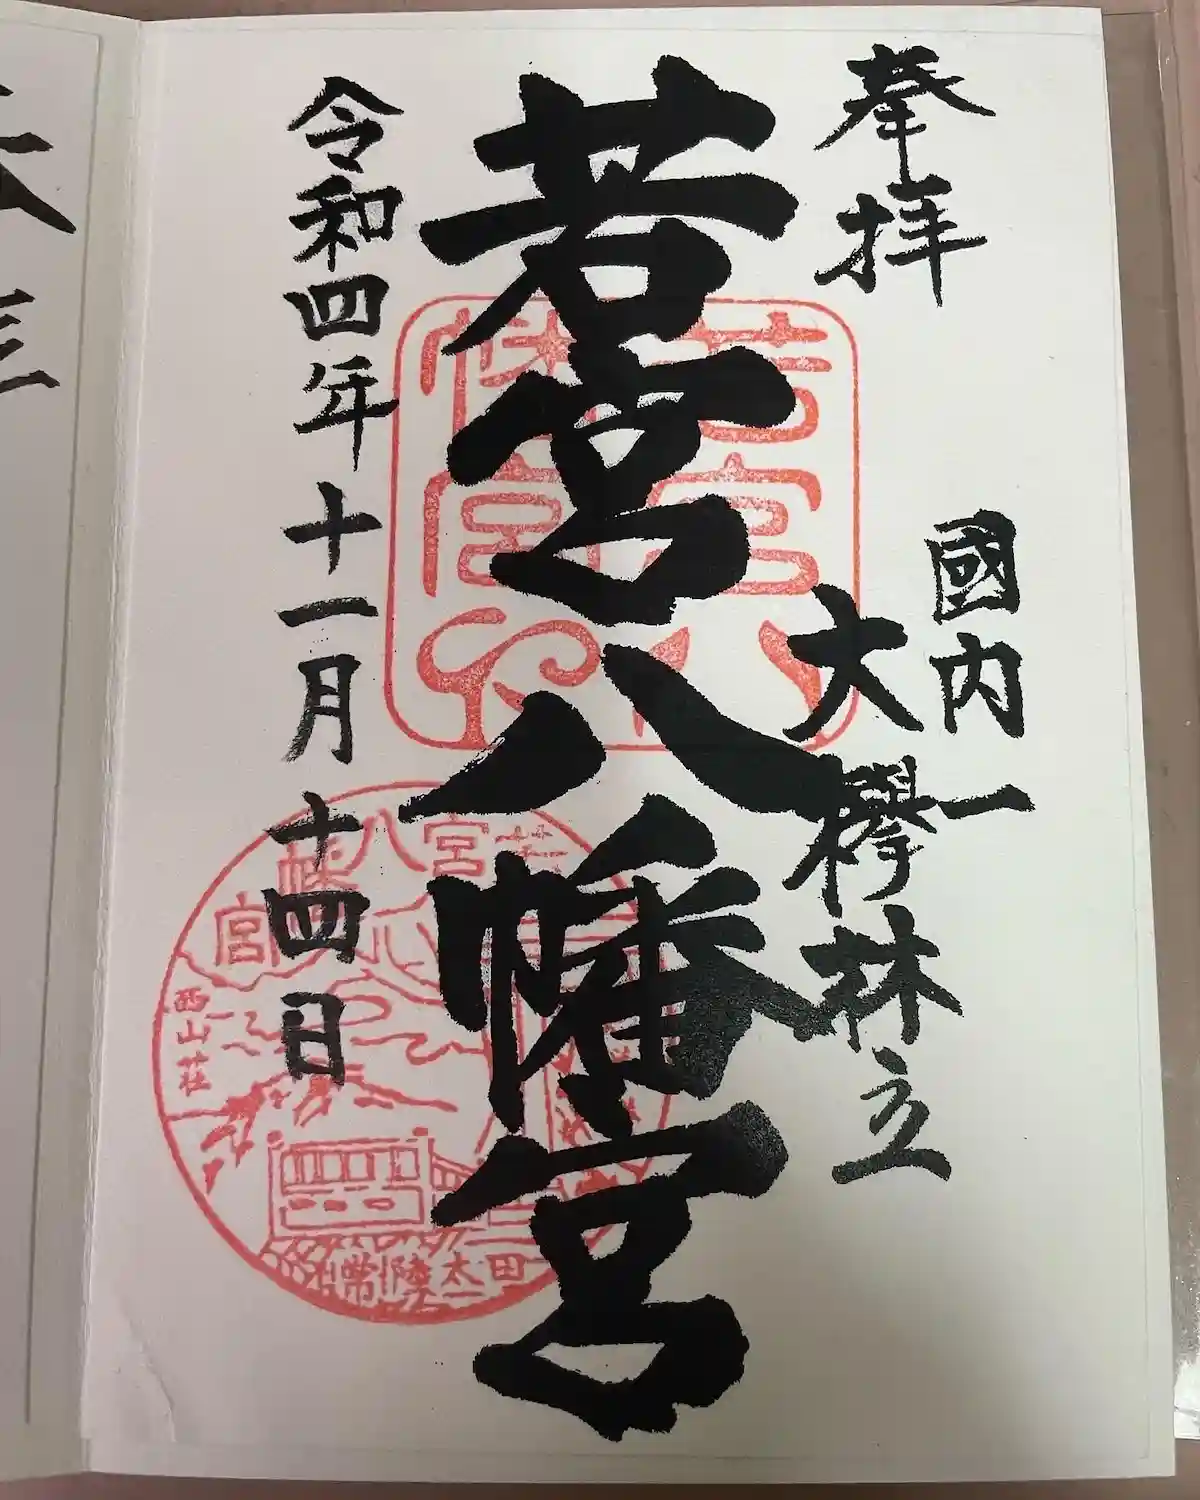 奉拝
國内一
大欅林立
若宮八幡宮
令和四年十一月十四日
若宮八
幡宮
若宮八幡宮
西山荘
常陸太田